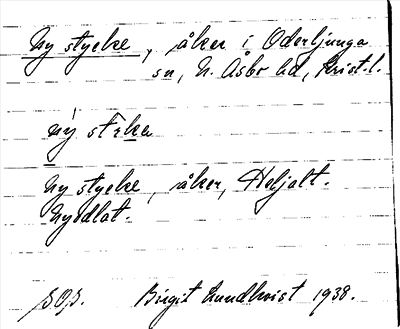 Ny stycke, åker i Oderljunga
sn, N. Åsbo hd, Krist.l.
ný strke
Ny stycke, åker, Heljalt.
Nyodlat.
Birgit Lundkvist 1938.